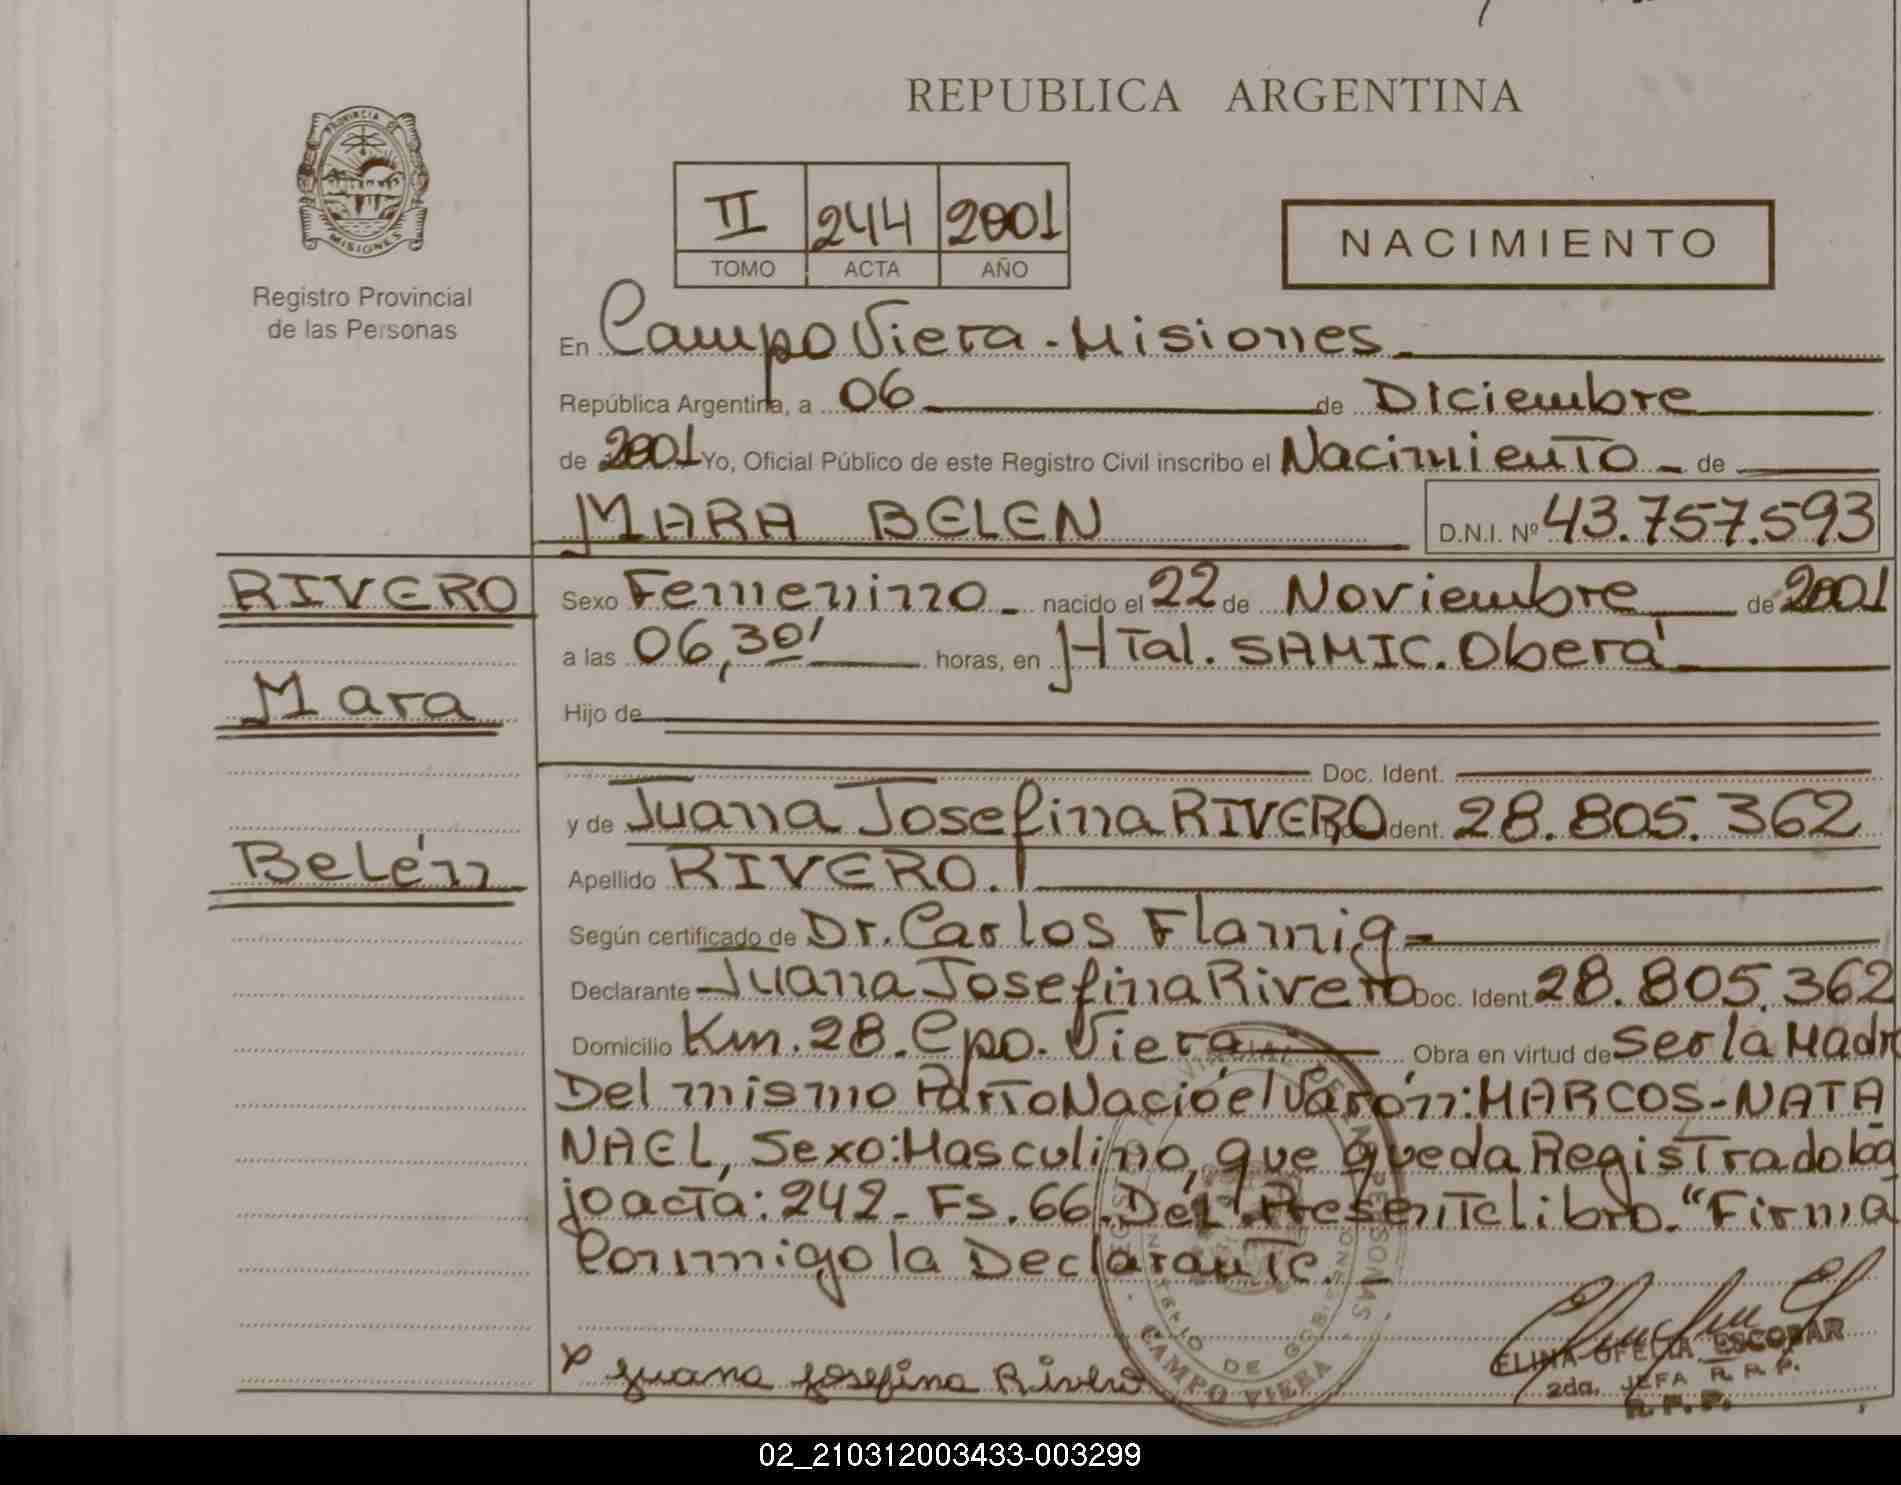 REPUBLICA ARGENTINA
PROVINCIA DE
MISIONES
Registro Provincial
de las Personas
II 244 2001
TOMO ACTA AÑO
NACIMIENTO
En Campo Viera - Misiones
República Argentina, a 06 de Diciembre
de 2001 Yo, Oficial Público de este Registro Civil inscribo el Nacimiento de
MARA BELEN D.N.I. Nº 43.757.593
RIVERO
Mara
Belén
Sexo Femenino nacido el 22 de Noviembre de 2001
a las 06,30' horas, en HTal. SAMIC. Oberá
Hijo de
Doc. Ident.
y de Juana Josefina RIVERO Doc. Ident. 28.805.362
Apellido RIVERO.
Según certificado de Dr. Carlos Flamig
Declarante Juana Josefina Rivero Doc. Ident. 28.805.362
Domicilio Km. 28. Cpo. Viera Obra en virtud de Ser la Madr
Del mismo Parto Nació el Varón: MARCOS-NATA
NAEL, Sexo: Masculino, que queda Registrado ba
jo acta: 242 - Fs. 66. Del Presente libro. "Firma
Conmigo la Declarante.
x Juana Josefina Rivero
CAMPO VIERA
ELINA OFELIA ESCOBAR
2da. JEFA R. R. P.
R. P. P.
02_210312003433-003299